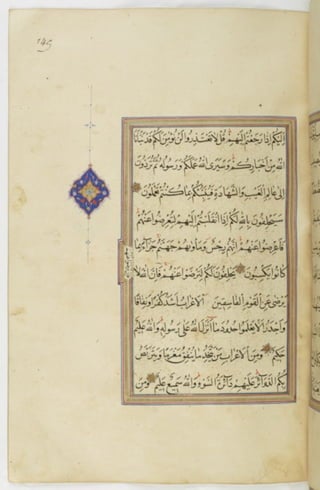 149
اليكم اذا رجعتم اليهم قل لا تعتذروا لن نؤمن لكم قد نبأنا
الله من اخباركم وسيرى الله عملكم ورسوله ثم تردون
الى عالم الغيب والشهادة فينبئكم بما كنتم تعملون
سيحلفون بالله لكم اذا انقلبتم اليهم لتعرضوا عنهم
فاعرضوا عنهم انهم رجس ومأويهم جهنم جزاء بما
كانوا يكسبون يحلفون لكم لترضوا عنهم فان الله لا
يرضى عن القوم الفاسقين الاعراب اشد كفرا ونفاقا
واجدر الا يعلموا حدود ما انزل الله على رسوله والله عليم
حكيم ومن الاعراب من يتخذ ما ينفق مغرما ويتربص
بكم الدوائر عليهم دائرة السوء والله سميع عليم ومن